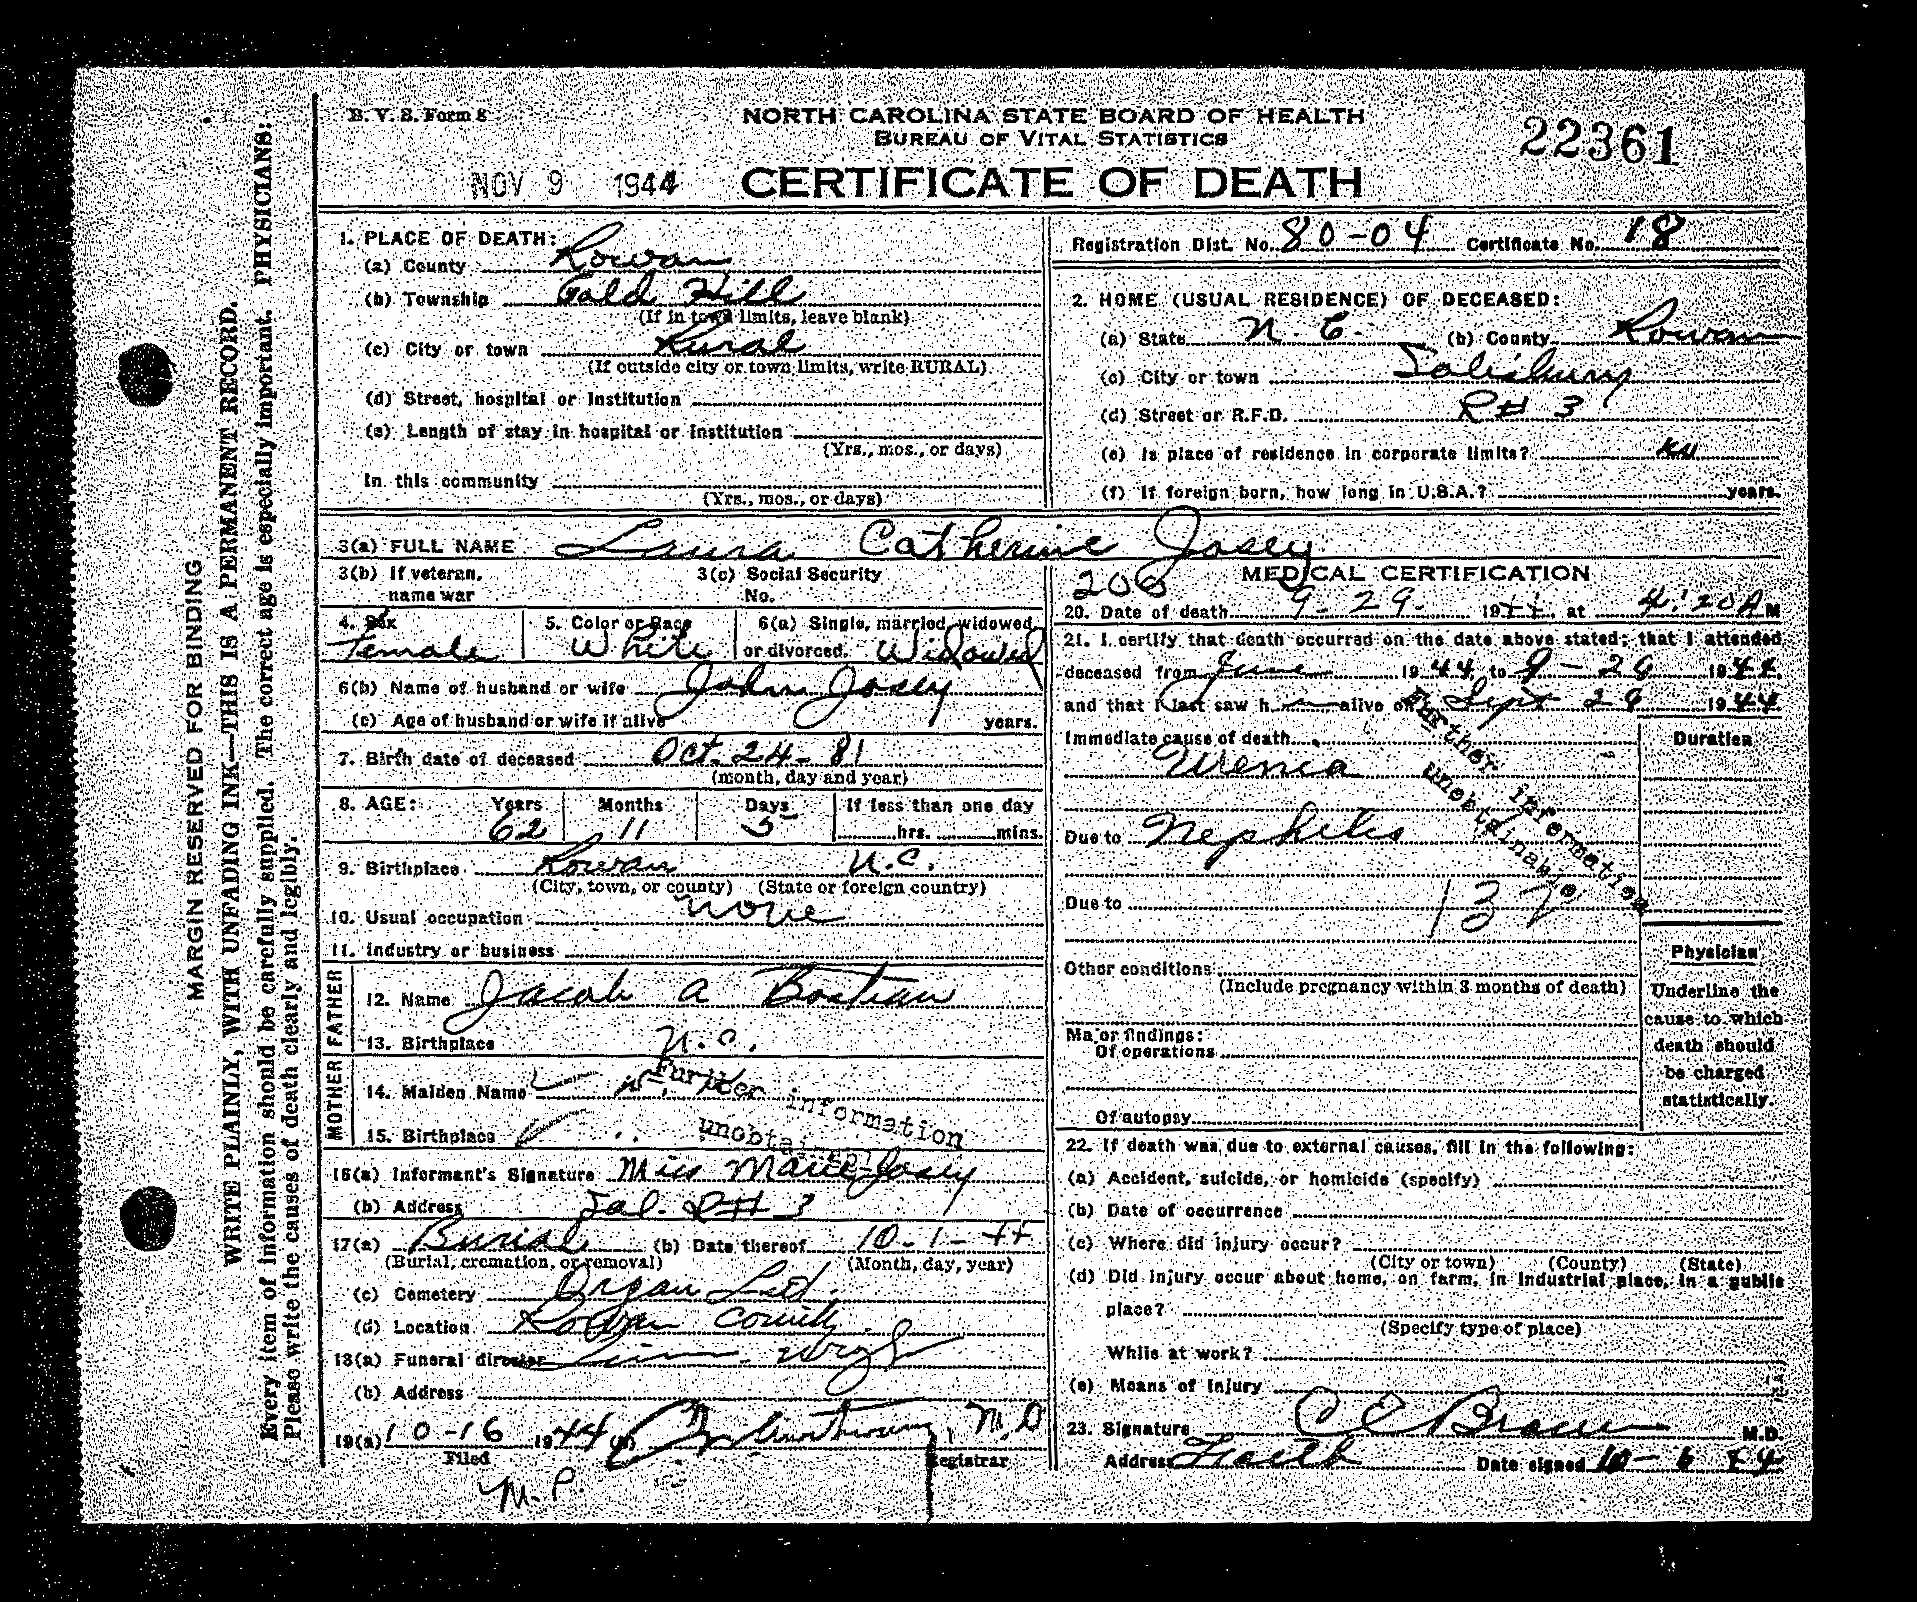 B. V. S. Form 8
NORTH CAROLINA STATE BOARD OF HEALTH
BUREAU OF VITAL STATISTICS
22361
NOV 9 1944 CERTIFICATE OF DEATH
MARGIN RESERVED FOR BINDING
WRITE PLAINLY, WITH UNFADING INK—THIS IS A PERMANENT RECORD.
Every item of information should be carefully supplied. The correct age is especially important. PHYSICIANS:
Please write the causes of death clearly and legibly.
1. PLACE OF DEATH:
(a) County Rowan
(b) Township Gold Hill
(If in town limits, leave blank)
(c) City or town Rural
(If outside city or town limits, write RURAL)
(d) Street, hospital or institution
(e) Length of stay in hospital or institution
(Yrs., mos., or days)
In this community
(Yrs., mos., or days)
Registration Dist. No. 80-04 Certificate No. 18
2. HOME (USUAL RESIDENCE) OF DECEASED:
(a) State N. C. (b) County Rowan
(c) City or town Salisbury
(d) Street or R.F.D. R# 3
(e) Is place of residence in corporate limits?
(f) If foreign born, how long in U.S.A.? years.
3(a) FULL NAME Laura Catherine Josey
3(b) If veteran, name war
3(c) Social Security No.
4. Sex Female
5. Color or Race White
6(a) Single, married, widowed, or divorced. Widowed
6(b) Name of husband or wife John Josey
(c) Age of husband or wife if alive years.
7. Birth date of deceased Oct. 24 - 81
(month, day and year)
8. AGE: Years Months Days If less than one day
62 11 5 hrs. mins.
9. Birthplace Rowan N.C.
(City, town, or county) (State or foreign country)
10. Usual occupation none
11. Industry or business
FATHER
12. Name Jacob A Bostian
13. Birthplace N.C.
MOTHER
14. Maiden Name
15. Birthplace
Further information
16(a) Informant's Signature Miss Marie Josey
(b) Address Sal. R# 3
17(a) Burial (b) Date thereof 10-1-44
(Burial, cremation, or removal) (Month, day, year)
(c) Cemetery Organ
(d) Location Rowan County
18(a) Funeral director
(b) Address
19(a) 10-16 1944 (b) M.D
Filed Registrar
M. P.
206 MEDICAL CERTIFICATION
20. Date of death 9-29- 1944 at 4:20 A M
21. I certify that death occurred on the date above stated; that I attended
deceased from June 1944 to 9-29 1944
and that I last saw h alive on Sept 29 1944
Immediate cause of death
Duration
Uremia
Further information unobtainable
Due to Nephritis
Due to 132
Other conditions
(Include pregnancy within 3 months of death)
Major findings:
Of operations
Of autopsy
Physician
Underline the
cause to which
death should
be charged
statistically.
22. If death was due to external causes, fill in the following:
(a) Accident, suicide, or homicide (specify)
(b) Date of occurrence
(c) Where did injury occur?
(City or town) (County) (State)
(d) Did injury occur about home, on farm, in industrial place, in a public
place?
(Specify type of place)
While at work?
(e) Means of injury
23. Signature C E Brown M.D.
Address Faith Date signed 10-6 44